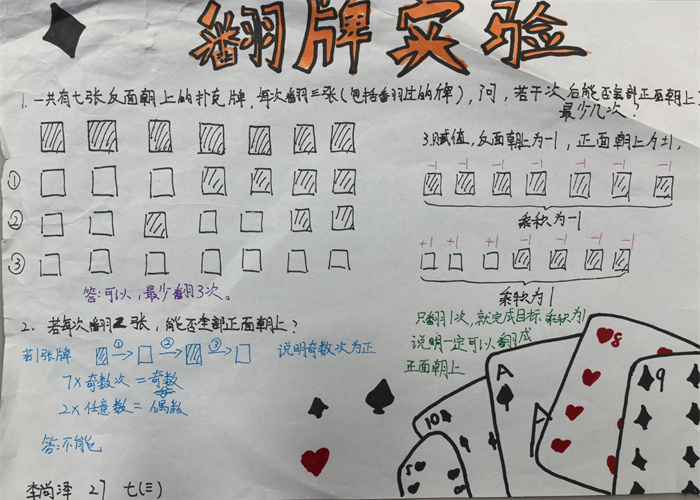 翻牌实验
1.一共有七张反面朝上的扑克牌,每次翻三张(包括翻过的牌),问,若干次后能否全部正面朝上?
最少几次?
①
②
③
答:可以,最少翻3次。
2. 若每次翻2张,能否全部正面朝上?
若1张牌 ① ② ③ 说明奇数次为正
7×奇数次=奇数
2×任意数=偶数
答:不能
3.赋值,反面朝上为-1,正面朝上为+1,
-1 -1 -1 -1 -1 -1 -1
乘积为-1
+1 +1 +1 -1 -1 -1 -1
乘积为1
只翻1次,就完成目标乘积为1
说明一定可以翻成
正面朝上
10
5
A
A
8
9
李尚泽 27 七(三)